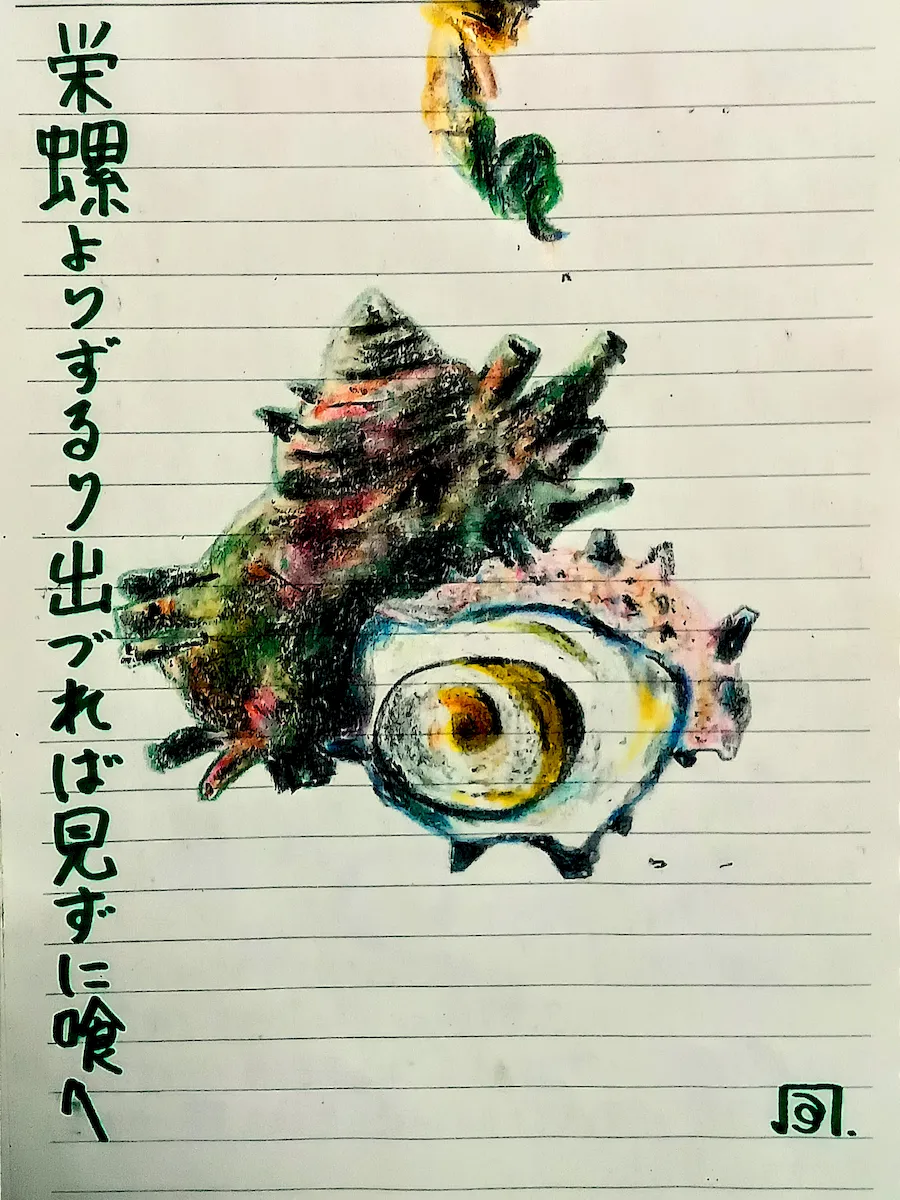 栄螺よりずるり出づれば見ずに喰へ